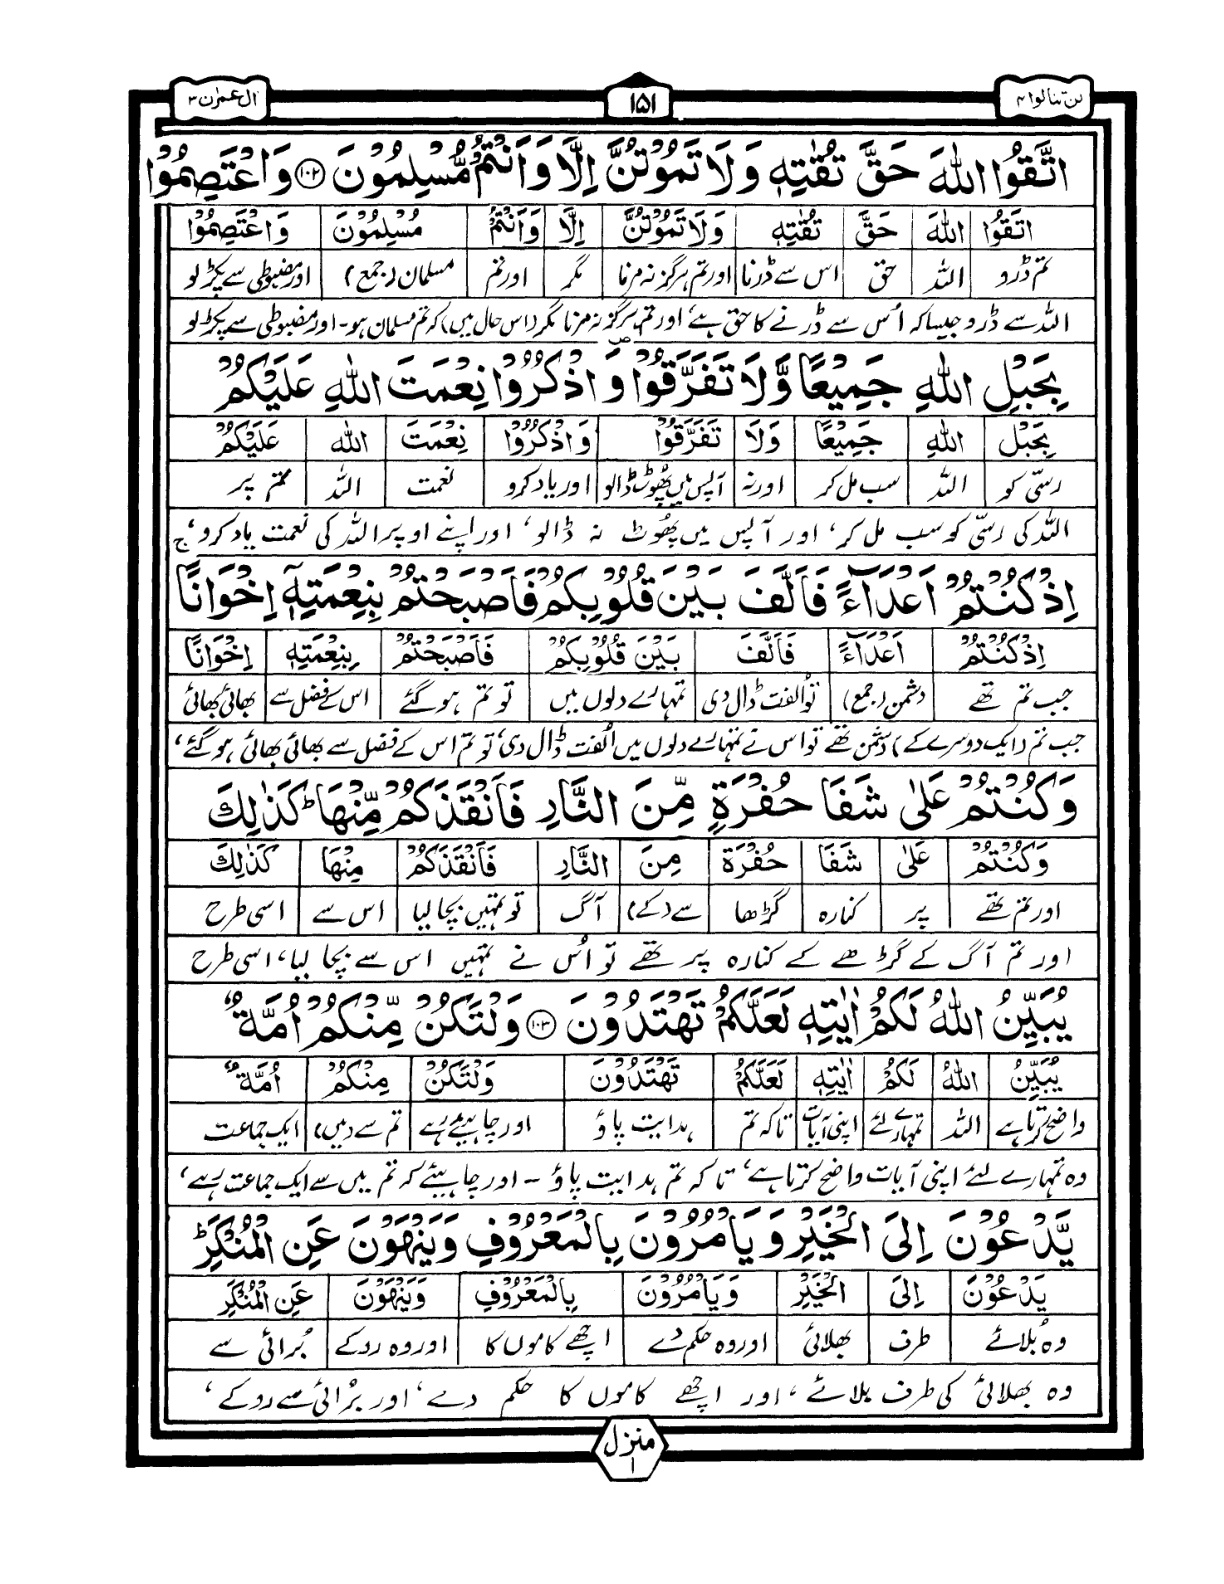 لن تنالوا ۴ ۱۵۱ اٰل عمرٰن ۳
اتَّقُوا اللّٰهَ حَقَّ تُقٰتِهٖ وَلَا تَمُوْتُنَّ اِلَّا وَاَنْتُمْ مُّسْلِمُوْنَ ۝۱۰۲ وَاعْتَصِمُوْا
اتَّقُوا اللّٰهَ حَقَّ تُقٰتِهٖ وَلَا تَمُوْتُنَّ اِلَّا وَاَنْتُمْ مُسْلِمُوْنَ وَاعْتَصِمُوْا
تم ڈرو اللہ حق اس سے ڈرنا اور تم ہرگز نہ مرنا مگر اور تم مسلمان (جمع) اور مضبوطی سے پکڑ لو
اللہ سے ڈرو جیسا کہ اُس سے ڈرنے کا حق ہے، اور تم ہرگز نہ مرنا مگر (اس حال میں) کہ تم مسلمان ہو۔ اور مضبوطی سے پکڑ لو
بِحَبْلِ اللّٰهِ جَمِيْعًا وَّلَا تَفَرَّقُوْا ۪ وَاذْكُرُوْا نِعْمَتَ اللّٰهِ عَلَيْكُمْ
بِحَبْلِ اللّٰهِ جَمِيْعًا وَلَا تَفَرَّقُوْا وَاذْكُرُوْا نِعْمَتَ اللّٰه عَلَيْكُمْ
رسّی کو اللہ سب مل کر اور نہ آپس میں پھوٹ ڈالو اور یاد کرو نعمت اللہ تم پر
اللہ کی رسّی کو سب مل کر، اور آپس میں پھُوٹ نہ ڈالو، اور اپنے اوپر اللہ کی نعمت یاد کرو،
اِذْ كُنْتُمْ اَعْدَآءً فَاَلَّفَ بَيْنَ قُلُوْبِكُمْ فَاَصْبَحْتُمْ بِنِعْمَتِهٖٓ اِخْوَانًا ۚ
اِذْ كُنْتُمْ اَعْدَآءً فَاَلَّفَ بَيْنَ قُلُوْبِكُمْ فَاَصْبَحْتُمْ بِنِعْمَتِهٖ اِخْوَانًا
جب تم تھے دشمن (جمع) تو الفت ڈال دی تمہارے دلوں میں تو تم ہو گئے اس کے فضل سے بھائی بھائی
جب تم (ایک دوسرے کے) دشمن تھے تو اس نے تمہارے دلوں میں اُلفت ڈال دی، تو تم اس کے فضل سے بھائی بھائی ہو گئے،
وَكُنْتُمْ عَلٰى شَفَا حُفْرَةٍ مِّنَ النَّارِ فَاَنْقَذَكُمْ مِّنْهَا ؕ كَذٰلِكَ
وَكُنْتُمْ عَلٰى شَفَا حُفْرَةٍ مِنَ النَّارِ فَاَنْقَذَكُمْ مِنْهَا كَذٰلِكَ
اور تم تھے پر کنارہ گڑھا سے (کے) آگ تو تمہیں بچا لیا اس سے اسی طرح
اور تم آگ کے گڑھے کے کنارہ پر تھے تو اُس نے تمہیں اس سے بچا لیا، اسی طرح
يُبَيِّنُ اللّٰهُ لَكُمْ اٰيٰتِهٖ لَعَلَّكُمْ تَهْتَدُوْنَ ۝۱۰۳ وَلْتَكُنْ مِّنْكُمْ اُمَّةٌ
يُبَيِّنُ اللّٰهُ لَكُمْ اٰيٰتِهٖ لَعَلَّكُمْ تَهْتَدُوْنَ وَلْتَكُنْ مِنْكُمْ اُمَّةٌ
واضح کرتا ہے اللہ تمہارے لئے اپنی آیات تاکہ تم ہدایت پاؤ اور چاہیئے رہے تم سے (میں) ایک جماعت
وہ تمہارے لئے اپنی آیات واضح کرتا ہے، تاکہ تم ہدایت پاؤ۔ اور چاہیئے کہ تم میں سے ایک جماعت رہے،
يَّدْعُوْنَ اِلَى الْخَيْرِ وَيَاْمُرُوْنَ بِالْمَعْرُوْفِ وَيَنْهَوْنَ عَنِ الْمُنْكَرِ ؕ
يَدْعُوْنَ اِلَى الْخَيْرِ وَيَاْمُرُوْنَ بِالْمَعْرُوْفِ وَيَنْهَوْنَ عَنِ الْمُنْكَرِ
وہ بُلائے طرف بھلائی اور وہ حکم دے اچھے کاموں کا اور وہ روکے بُرائی سے
وہ بھلائی کی طرف بلائے، اور اچھے کاموں کا حکم دے، اور بُرائی سے روکے،
منزل
۱